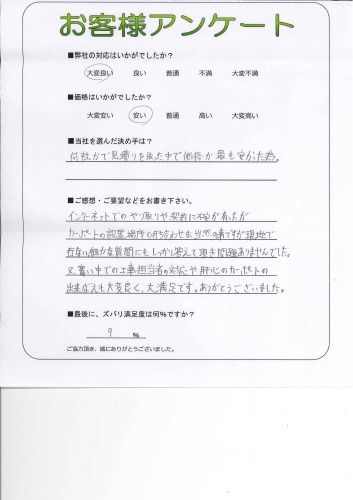 お客様アンケート
■弊社の対応はいかがでしたか？
大変良い 良い 普通 不満 大変不満
■価格はいかがでしたか？
大変安い 安い 普通 高い 大変高い
■当社を選んだ決め手は？
何社かで見積りを取った中で価格が最も安かった為。
■ご感想・ご要望などをお書き下さい。
インターネットでのやり取りや契約に不安が有ったが
カーポートの設置場所の打ち合わせは当然の事ですが現地で
行ない細かな質問にもしっかり答えて頂き問題ありませんでした。
又、暑い中での工事担当者の対応や肝心のカーポートの
出来ばえも大変良く、大満足です。ありがとうございました。
■最後に、ズバリ満足度は何％ですか？
9 ％
ご協力頂き、誠にありがとうございました。